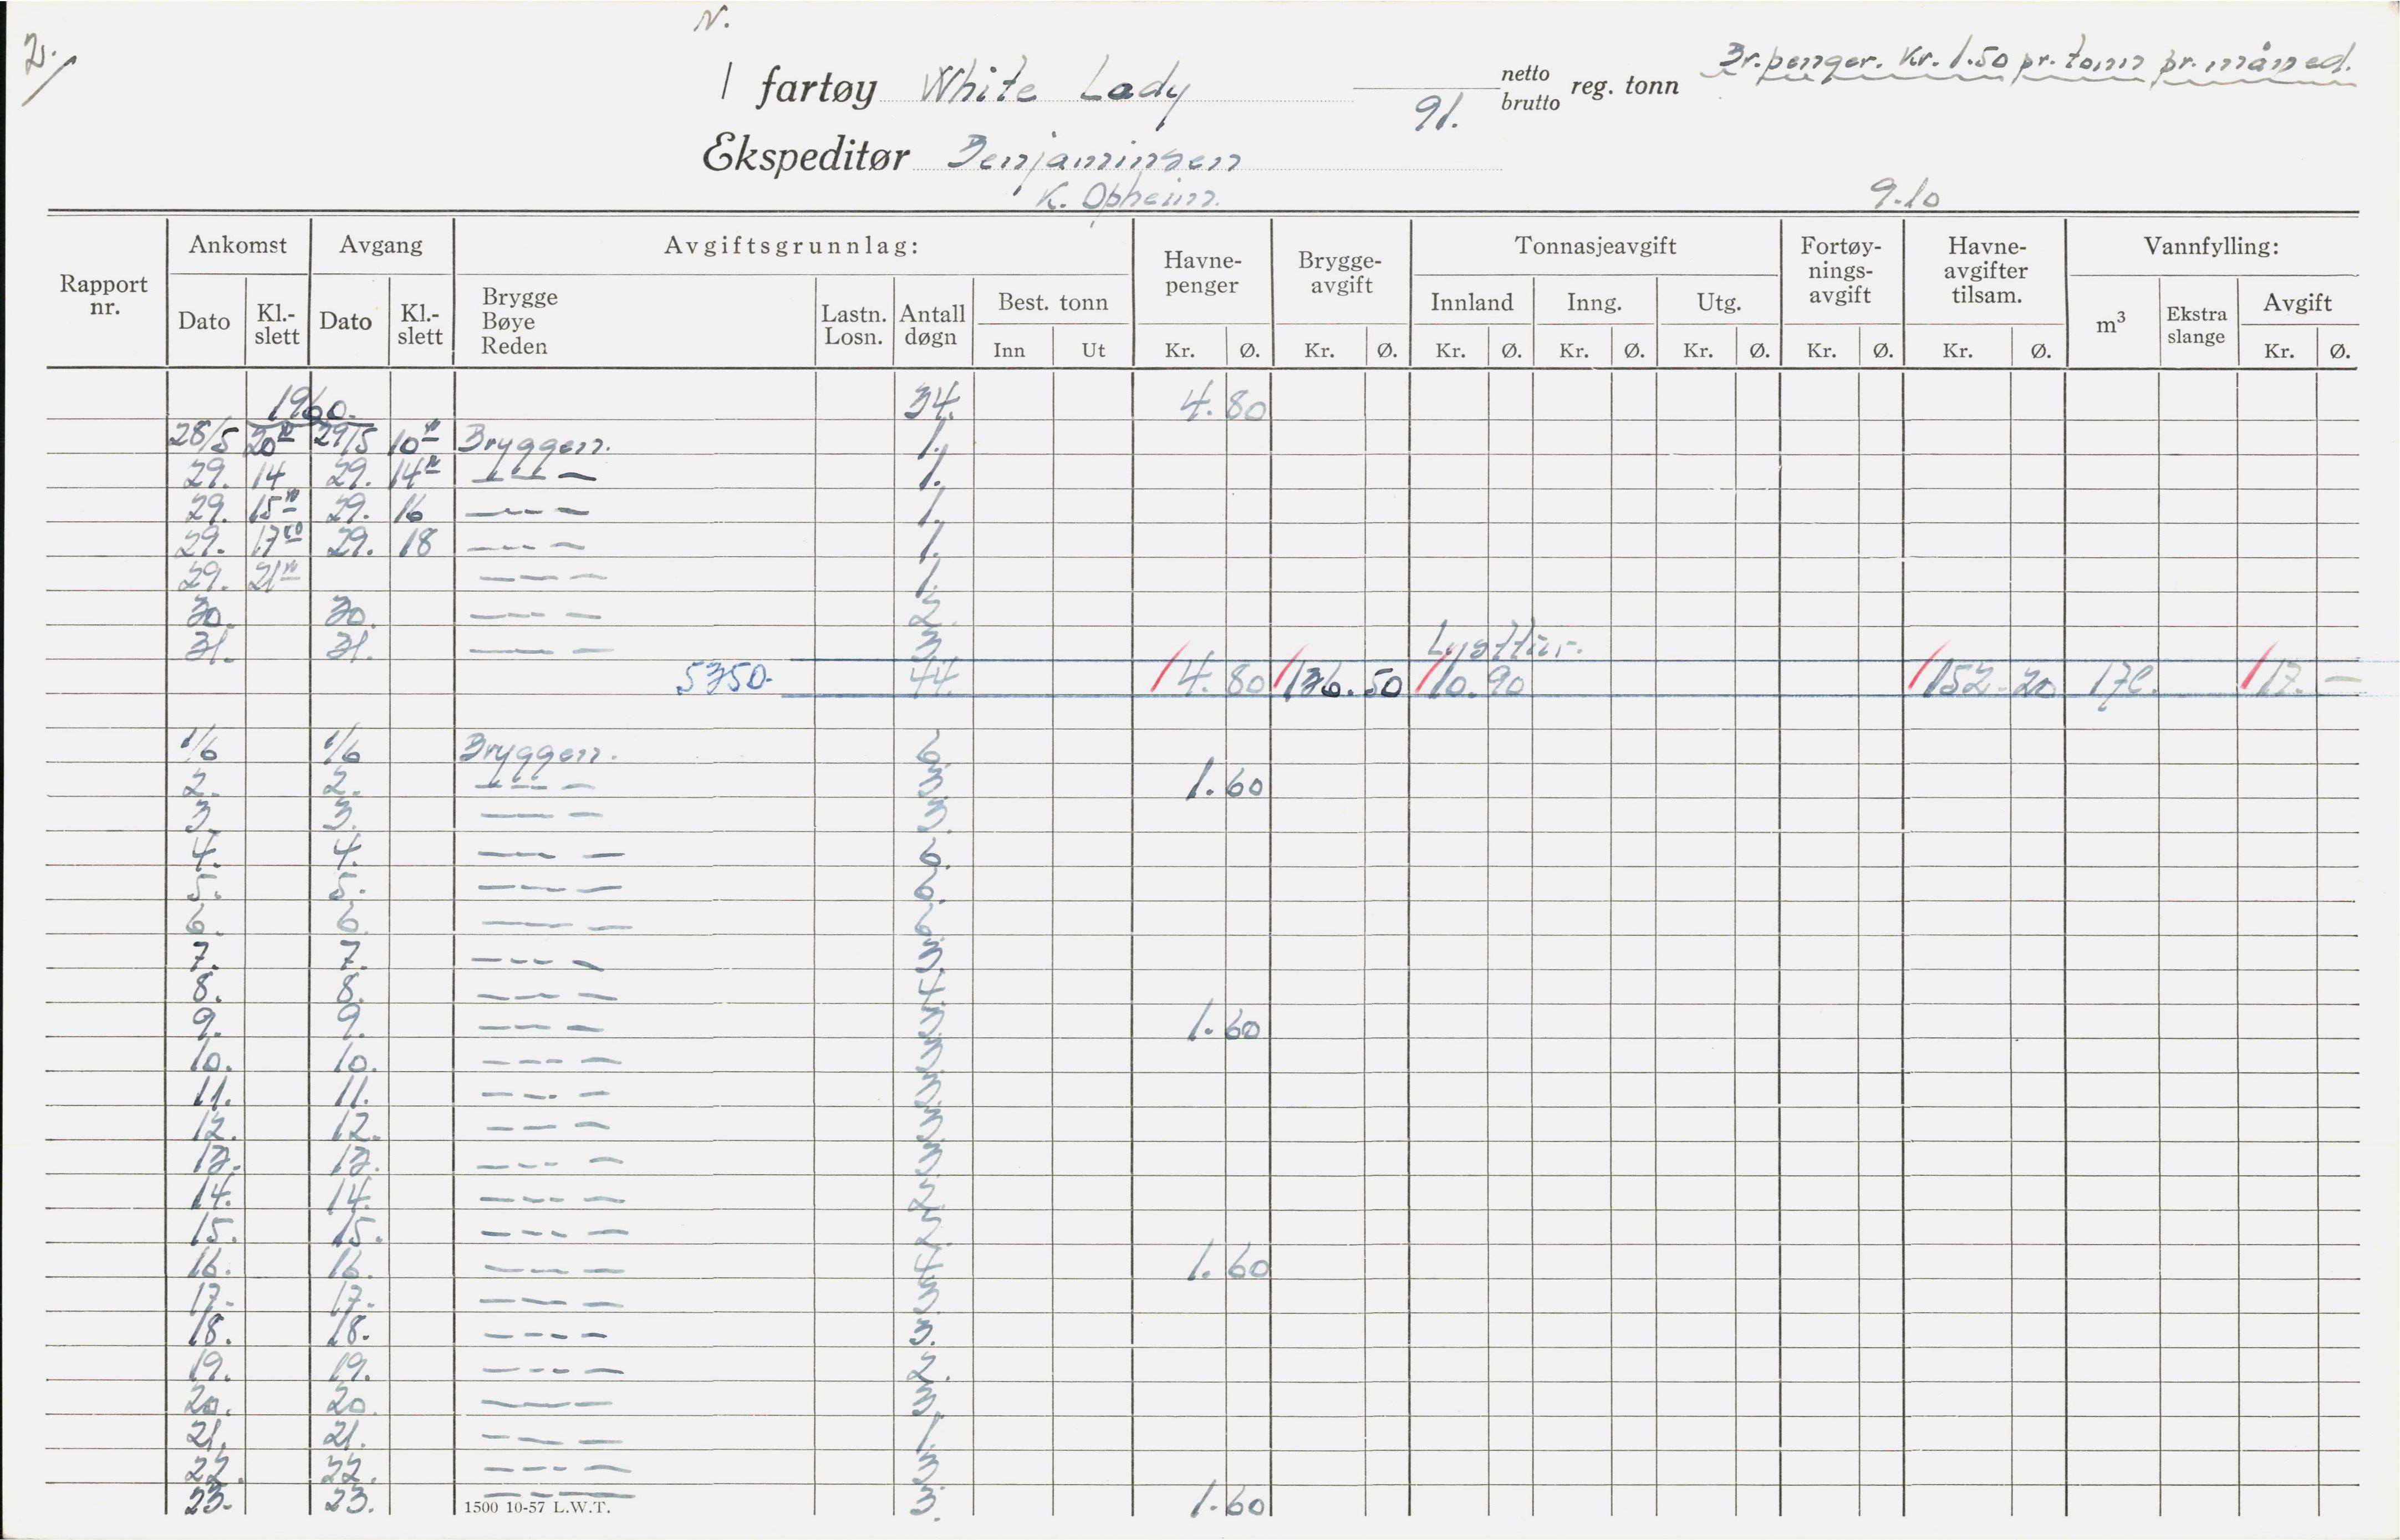 N.
2.
Br.penger. Kr. 1.50 pr. tonn pr. måned.
I fartøy White Lady netto brutto reg. tonn
91.
Ekspeditør Benjaminsen
K. Opheim. 9.10
Rapport nr. Ankomst Avgang Avgiftsgrunnlag: Havne-penger Brygge-avgift Tonnasjeavgift Fortøy-nings-avgift Havne-avgifter tilsam. Vannfylling:
Dato Kl.-slett Dato Kl.-slett Brygge Bøye Reden Lastn. Losn. Antall døgn Best. tonn Innland Inng. Utg. m³ Ekstra slange Avgift
Inn Ut Kr. Ø. Kr. Ø. Kr. Ø. Kr. Ø. Kr. Ø. Kr. Ø. Kr. Ø. Kr. Ø.
1960. 34. 4.80
28/5 20 29/5 10 Bryggen. 1.
29. 14 29. 14 — 1.
29. 15 29. 16 — 1.
29. 17 29. 18 — 1.
29. 21 — 1.
30. 30. — 2.
31. 31. — 3. Lysttur.
5350. 44. 4.80 136.50 10.90 152.20 17.—
1/6 1/6 Bryggen. 6
2. 2. — 3. 1.60
3. 3. — 3.
4. 4. — 6.
5. 5. —
6. 6. —
7. 7. — 3.
8. 8. — 4.
9. 9. — 1.60
10. 10. —
11. 11. —
12. 12. —
13. 13. —
14. 14. — 2.
15. 15. —
16. 16. — 1.60
17. 17. —
18. 18. — 3.
19. 19. — 2.
20. 20. — 3.
21. 21. — 1
22. 22. — 3
23. 23. — 3. 1.60
1500 10-57 L.W.T.